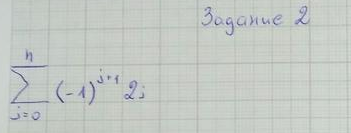 Задание 2
n
∑ (-1)^{j+1} 2j
j=0